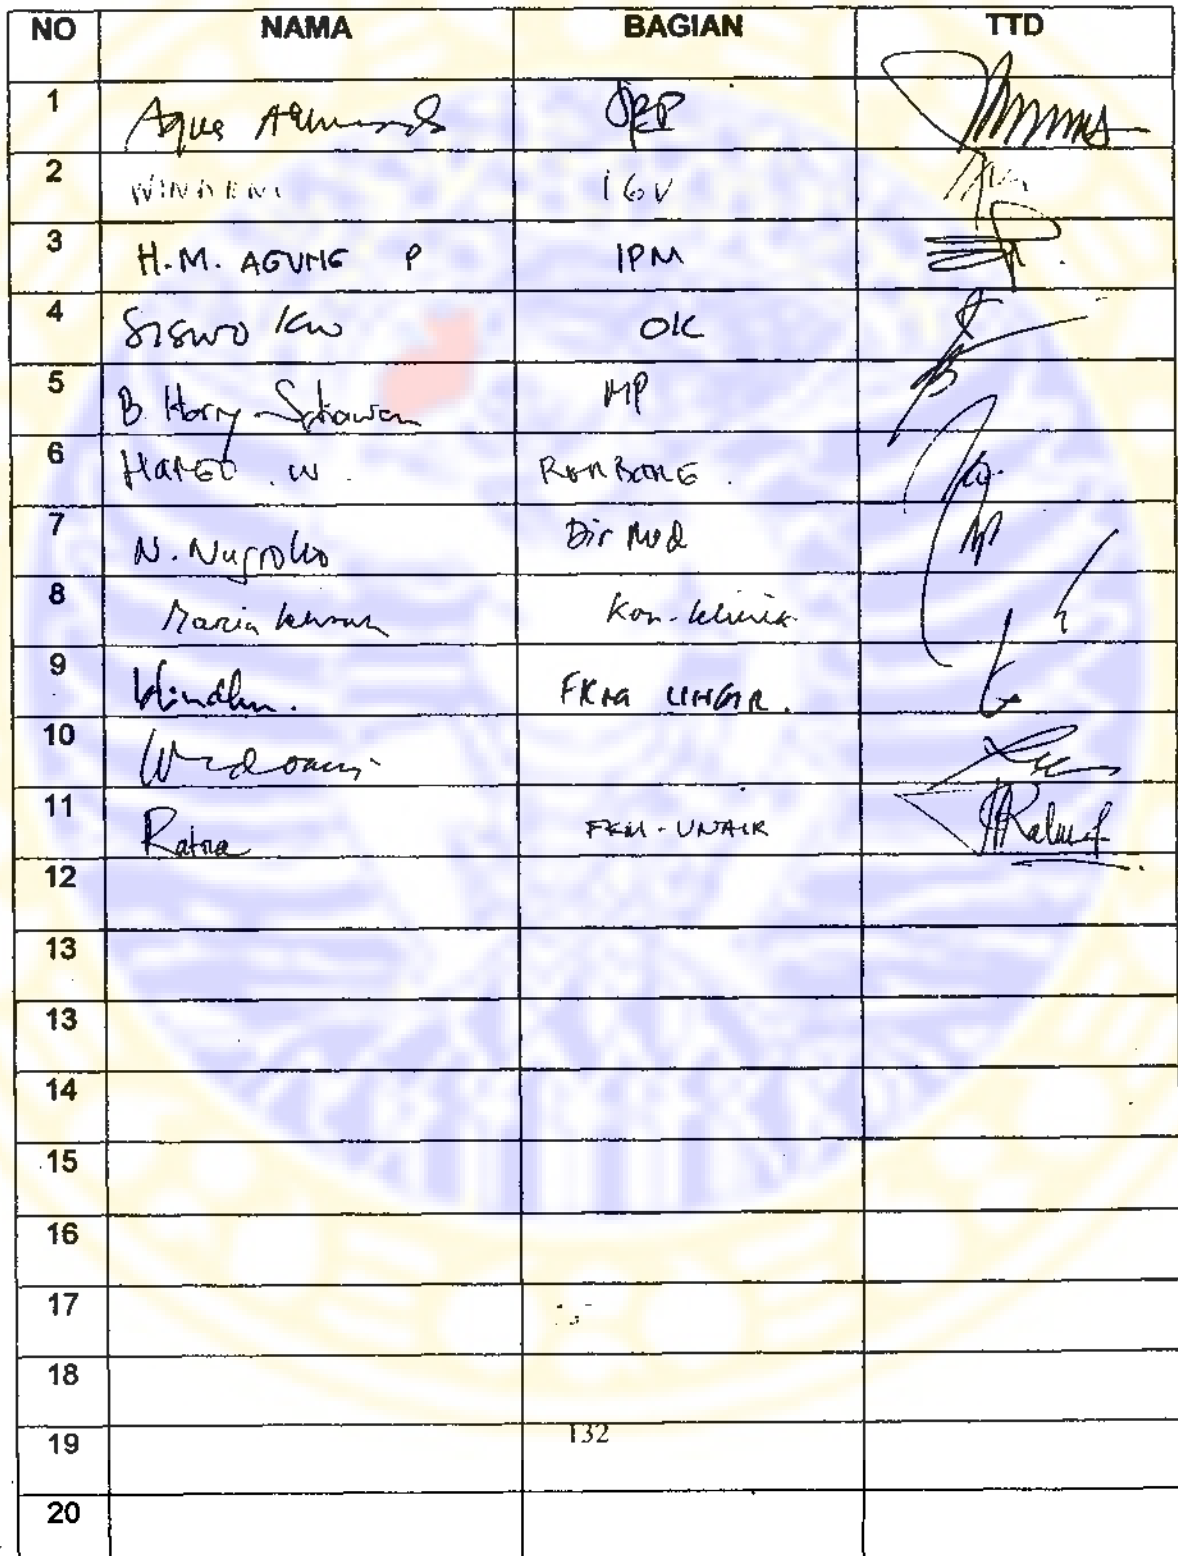 NO NAMA BAGIAN TTD
1 Agus
2 WINDENI IGV
3 H.M. AGUNG P IPM
4 SISWO KW OK
5 B Harry Setiawan MP
6 HARGO . W .
7 N. Nugroho Dir Med
8 Maria Kon-klinik
9 Windhu. FKM UNAIR.
10
11 Ratna FKM-UNAIR
12
13
13
14
15
16
17
18
19 132
20